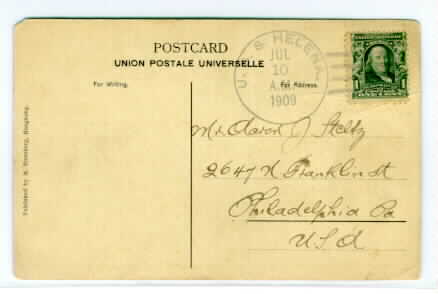 POSTCARD
UNION POSTALE UNIVERSELLE
For Writing.
For Address.
U. S. S. HELENA
JUL
10
A.M.
1909
1 1
Mr Aaron J Steltz
2647 N Franklin St
Philadelphia Pa
U.S.A
Published by M. Sternberg, Hongkong.